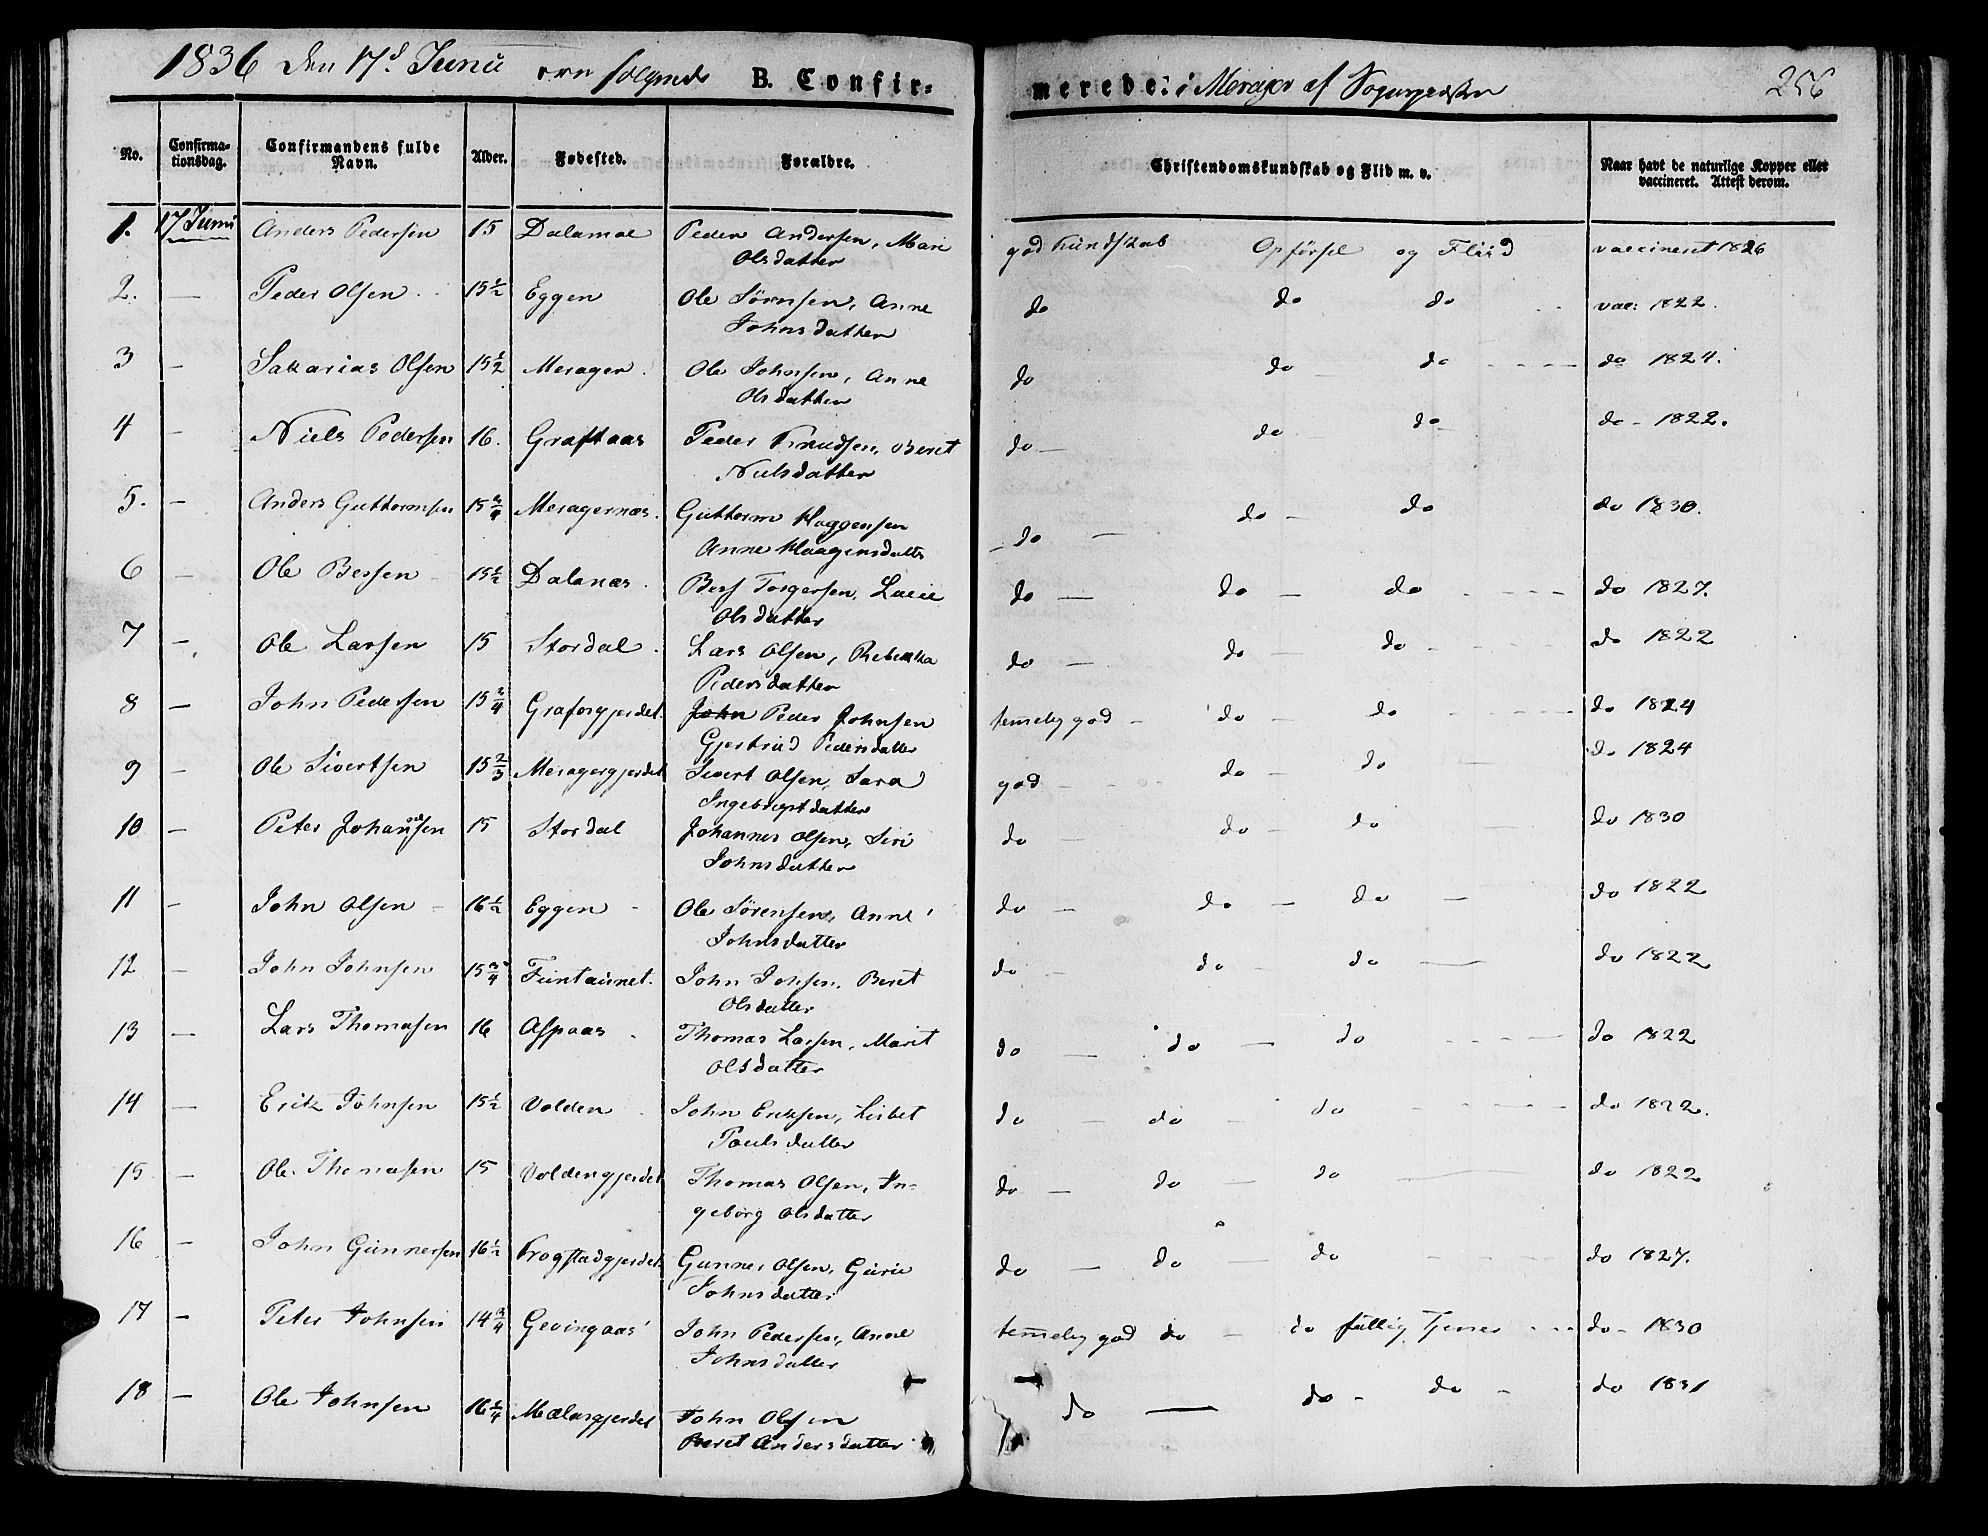 1836 den 17d Junii ere følgende B. Confir-
merede: i Merager af Sognepresten 256
No. Confirma-tionsdag. Confirmandens fulde Navn. Alder. Fødested. Forældre. Christendomskundskab og Flid m. v. Naar havt de naturlige Kopper eller vaccineret. Attest derom.
1. 17 Junii Anders Pedersen 15 Dalamoe Peder Andersen, Mari god Kundskab Opførsel og Fliid vaccineret 1826
Olsdatter
2. — Peder Olsen 15½ Eggen Ole Sørnsen, Anne do do do vac: 1822.
Johnsdatter
3 — Sakarias Olsen 15½ Merager Ole Johnsen, Anne do do — do do 1824.
Olsdatter
4 — Niels Pedersen 16. Graftaas Peder Knudsen, Beret do — do do do - 1822.
Nielsdatter
5. — Anders Guttormsen 15¾ Meragernæs. Guttorm Haggensen do — do — do do 1830.
Anne Haagensdatter
6 — Ole Bersen 15½ Dalanæs Bers Torgersen, Lucie do — do — do do 1827.
Olsdatter
7 — Ole Larsen 15 Stordal Lars Olsen, Rebekka do — do — do do 1822
Pedersdatter
8 — John Pedersen 15¾ Graforgjerdet John Peder Johnsen temelig god - do — do do 1824
Gjertrud Pedersdatter
9 — Ole Sivertsen 15⅔ Meragergjerdet Sivert Olsen, Sara god do — do do 1824
Ingebrigtdatter
10 — Peter Johansen 15 Stordal Johannes Olsen, Siri do — do — do do 1830
Johnsdatter
11 — John Olsen 16½ Eggen Ole Sørensen, Anne do — do — do — do 1822
Johnsdatter
12 — John Johnsen 15¾ Funtaunet. John Johsen, Beret do - do — do — do 1822
Olsdatter
13 — Lars Thomasen 16 Aspaas Thomas Larsen, Marit do — do — do do 1822
Olsdatter
14 — Erik Johnsen 15½ Volden John Eriksen, Lisbet do — do — do do 1822.
Paulsdatter
15 — Ole Thomasen 15 Voldengjerdet Thomas Olsen, In- do — do — do do 1822
geborg Olsdatter
16 — John Gunnersen 16½ Krogstadgjerdet Gunner Olsen, Guru do — do — do do 1827.
Johnsdatter
17 — Peter Johnsen 14¾ Gevingaas John Pedersen, Anne temelig god do — do fattig Tjener do - 1830
Johnsdatter
18 — Ole Johnsen 16¼ Mælasgjerdet John Olsen do — do - do - do 1831
Beret Andersdatter